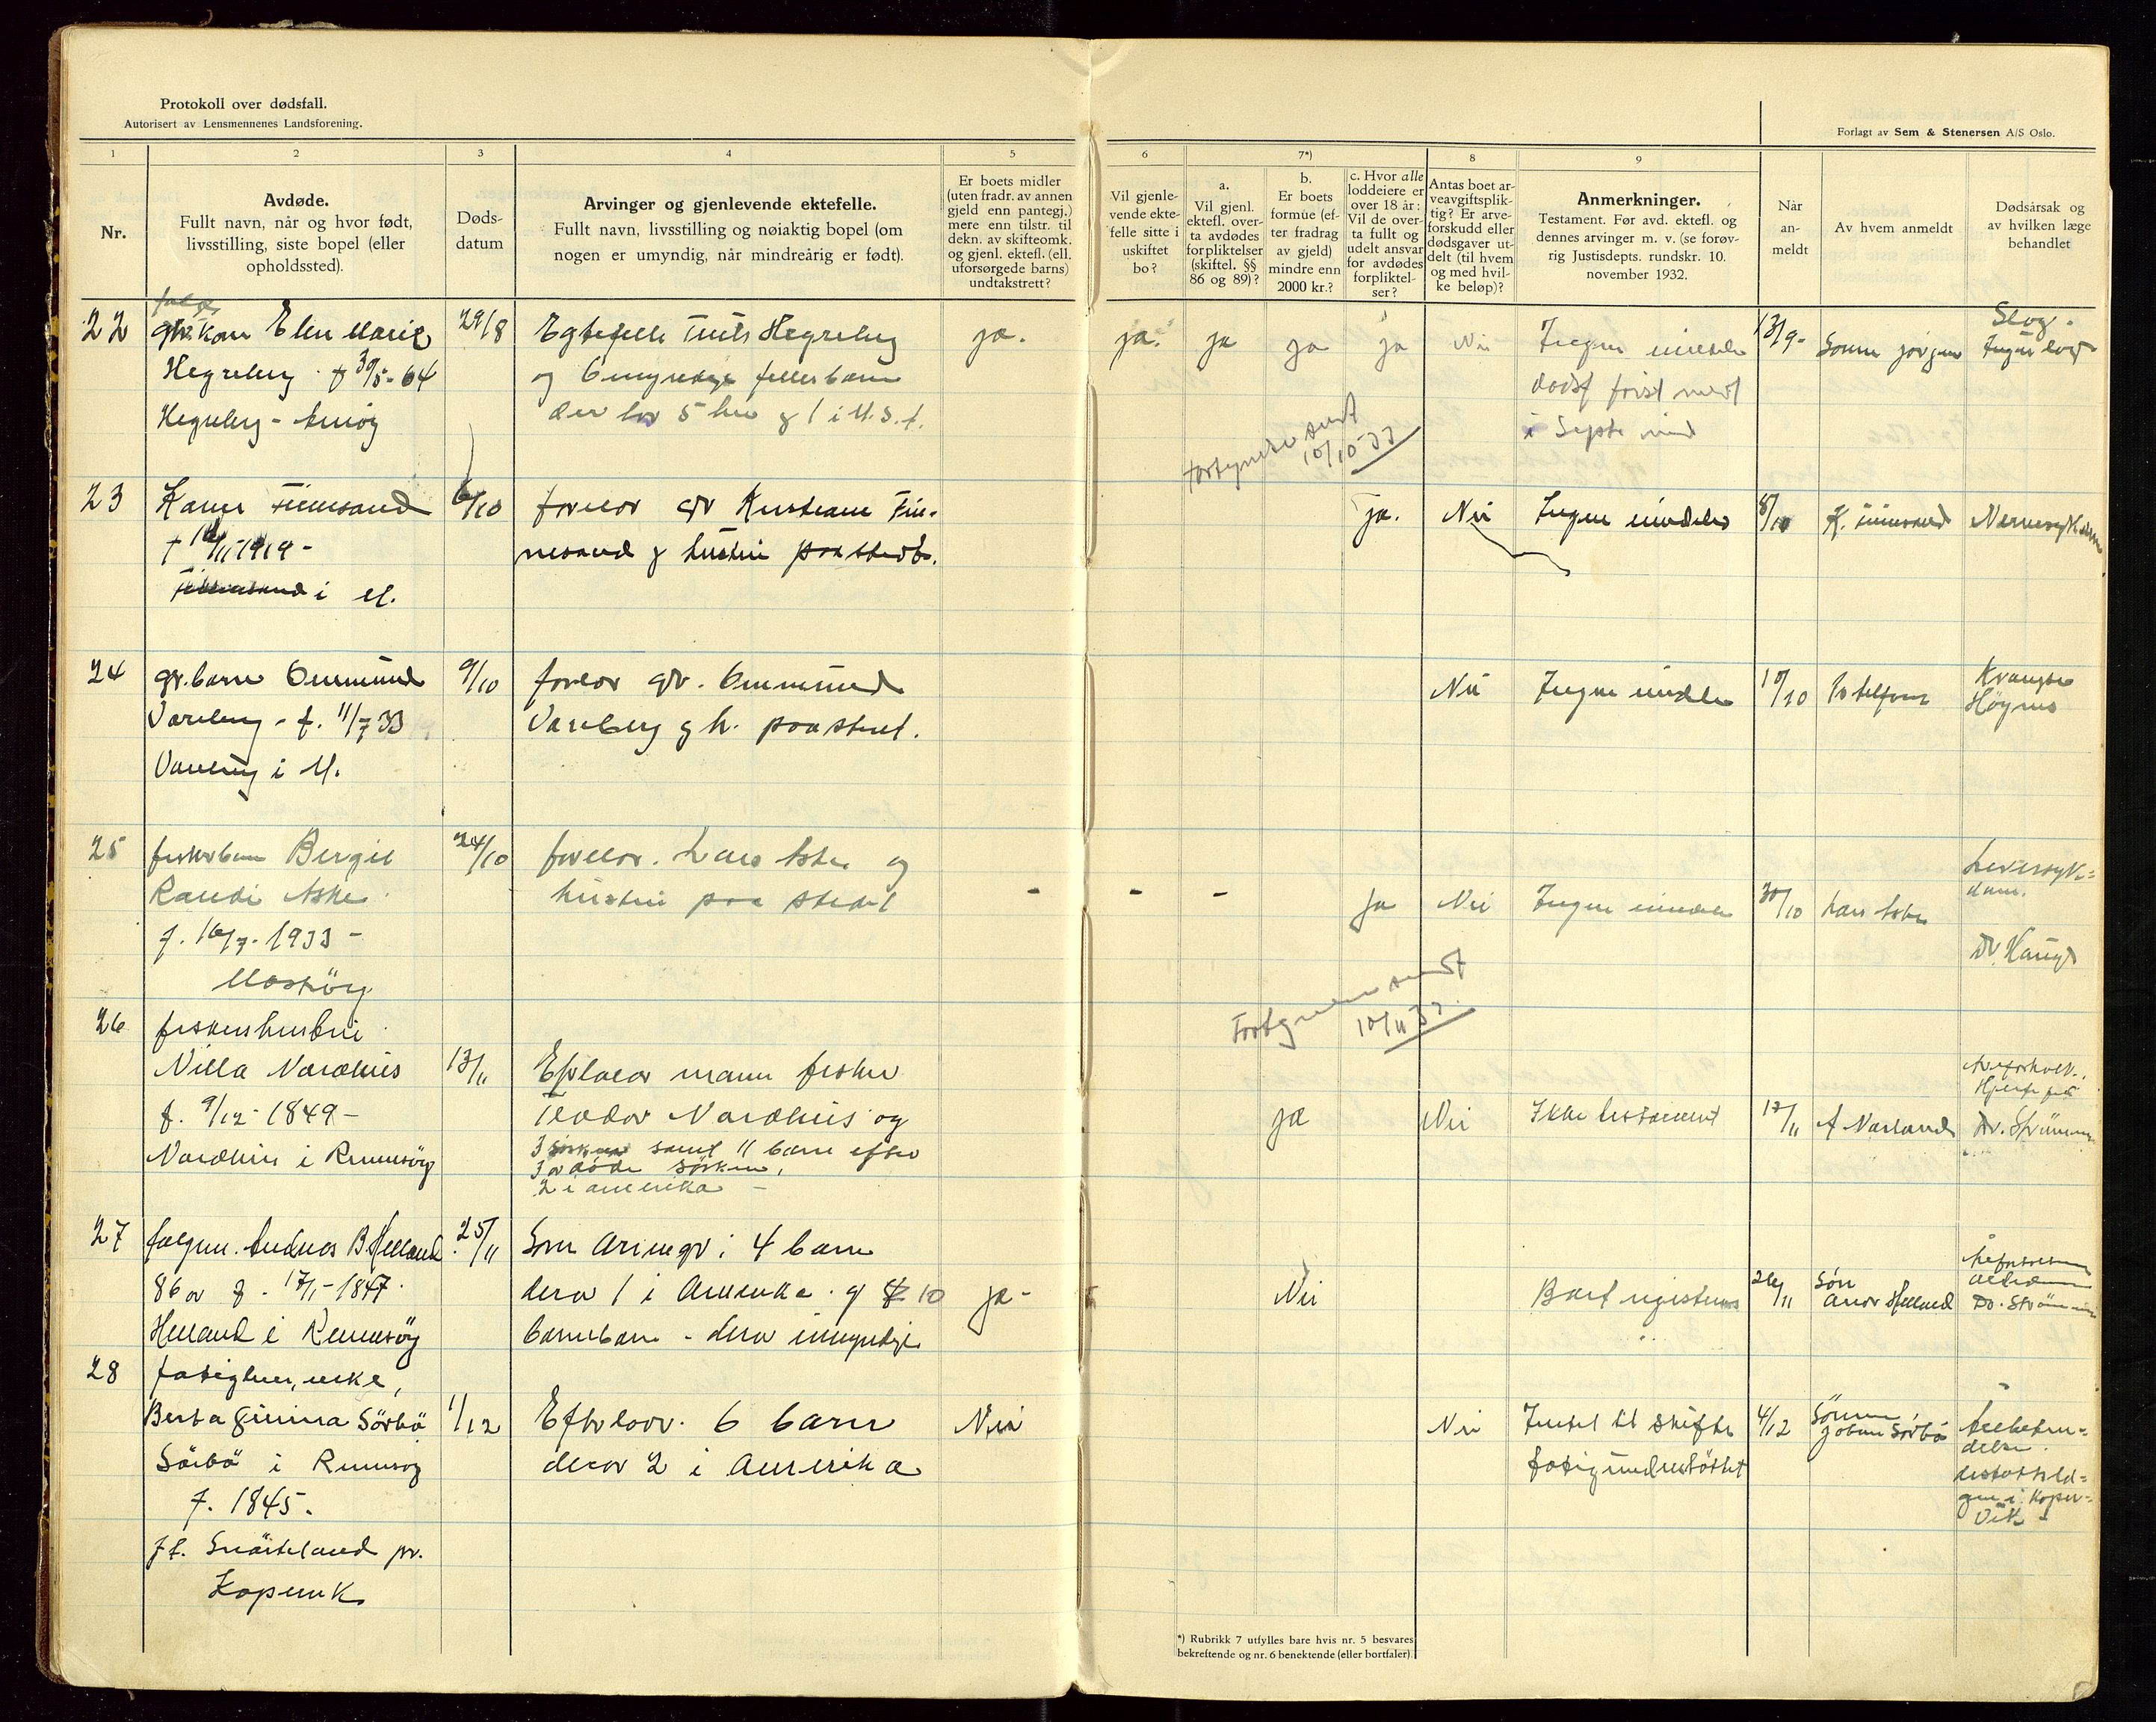 Protokoll over dødsfall.
Autorisert av Lensmennenes Landsforening.
Forlagt av Sem & Stenersen A/S Oslo.
1
2
3
4
5
6
7*)
8
9
Nr.
Avdøde.
Fullt navn, når og hvor født,
livsstilling, siste bopel (eller
opholdssted).
Døds-
datum
Arvinger og gjenlevende ektefelle.
Fullt navn, livsstilling og nøiaktig bopel (om
nogen er umyndig, når mindreårig er født).
Er boets midler
(uten fradr. av annen
gjeld enn pantegj.)
mere enn tilstr. til
dekn. av skifteomk.
og gjenl. ektef. (ell.
uforsørgede barns)
undtakstrett?
Vil gjenle-
vende ekte-
felle sitte i
uskiftet
bo?
a.
Vil gjenl.
ektefl. over-
ta avdødes
forpliktelser
(skiftel. §§
86 og 89)?
b.
Er boets
formue (ef-
ter fradrag
av gjeld)
mindre enn
2000 kr.?
c. Hvor alle
loddeiere er
over 18 år:
Vil de over-
ta fullt og
udelt ansvar
for avdødes
forpliktel-
ser?
Antas boet ar-
veavgiftsplik-
tig? Er arve-
forskudd eller
dødsgaver ut-
delt (til hvem
og med hvil-
ke beløp)?
Anmerkninger.
Testament. Før avd. ektefl. og
dennes arvinger m. v. (se forøv-
rig Justisdepts. rundskr. 10.
november 1932.
Når
an-
meldt
Av hvem anmeldt
Dødsårsak og
av hvilken læge
behandlet
22
kone Elen Marie
Hegreberg f 30/5-64
Hegreberg -
29/8
Egtefelle Hegreberg
og 6 myndige fellesbarn
derav 5 her og 1 i U.S.A.
ja.
ja.
ja
ja
ja
Nei
Ingen midler
dødsf først meldt
i Septe
13/9-
Sønn Jørgen
Slag-
Ingen
Fortegnelse sendt
10/10-33
23
Karen Finnesand
1919-
i M.
6/10
foreldr gbr Kristian Fin-
nesand g hustru paa stedet.
ja.
Nei
Ingen midler
8/10
K. Finnesand
24
gbr.barn Ommund
Vareberg - f. 11/7 33
Vareberg i M.
9/10
foreldr gbr. Ommund
Vareberg g h. paa stedet.
Nei
Ingen midler
10/10
telefon
25
fiskerbarn Bergit
Randi Aske
f. 16/7-1933-
Mosterøy
24/10
foreldr. Lars Aske og
hustru paa stedet
-
-
-
Ja
Nei
Ingen midler
30/10
Lars Aske
Leversyk-
dom.
Dr. Haugs
Fortegnelse sendt
10/11 33
26
fiskerhustru
Nilla Nordhus
f. 9/12-1849-
Nordhus i Rennesøy
13/11
Eftlader mann fisker
Teodor Nordhus og
3 søsken samt 11 barn efter
3 døde søsken,
2 i amerika -
ja
Nei
Ikke testament
17/11
27
folgm. Andreas B Helland
86 år f. 17/1-1847.
Helland i Rennesøy
25/11
Som Arvingr: 4 barn
derav 1 i Amerika. g 10
barnebarn - derav umyndige
ja-
Nei
Boet registreres
26/11
Søn
Helland
28
fatiglem, enke,
Berta Gurina Sørbø
Sørbø i Rennesøy
f. 1845.
Snørteland pr.
Kopervik
1/12
Efterlader. 6 barn
derav 2 i Amerika
Nei
Nei
Intet til skifte
fatigunderstøttet
4/12
Sønnen
Johan Sørbø
i Koper-
vik
*) Rubrikk 7 utfylles bare hvis nr. 5 besvares
bekreftende og nr. 6 benektende (eller bortfaler).